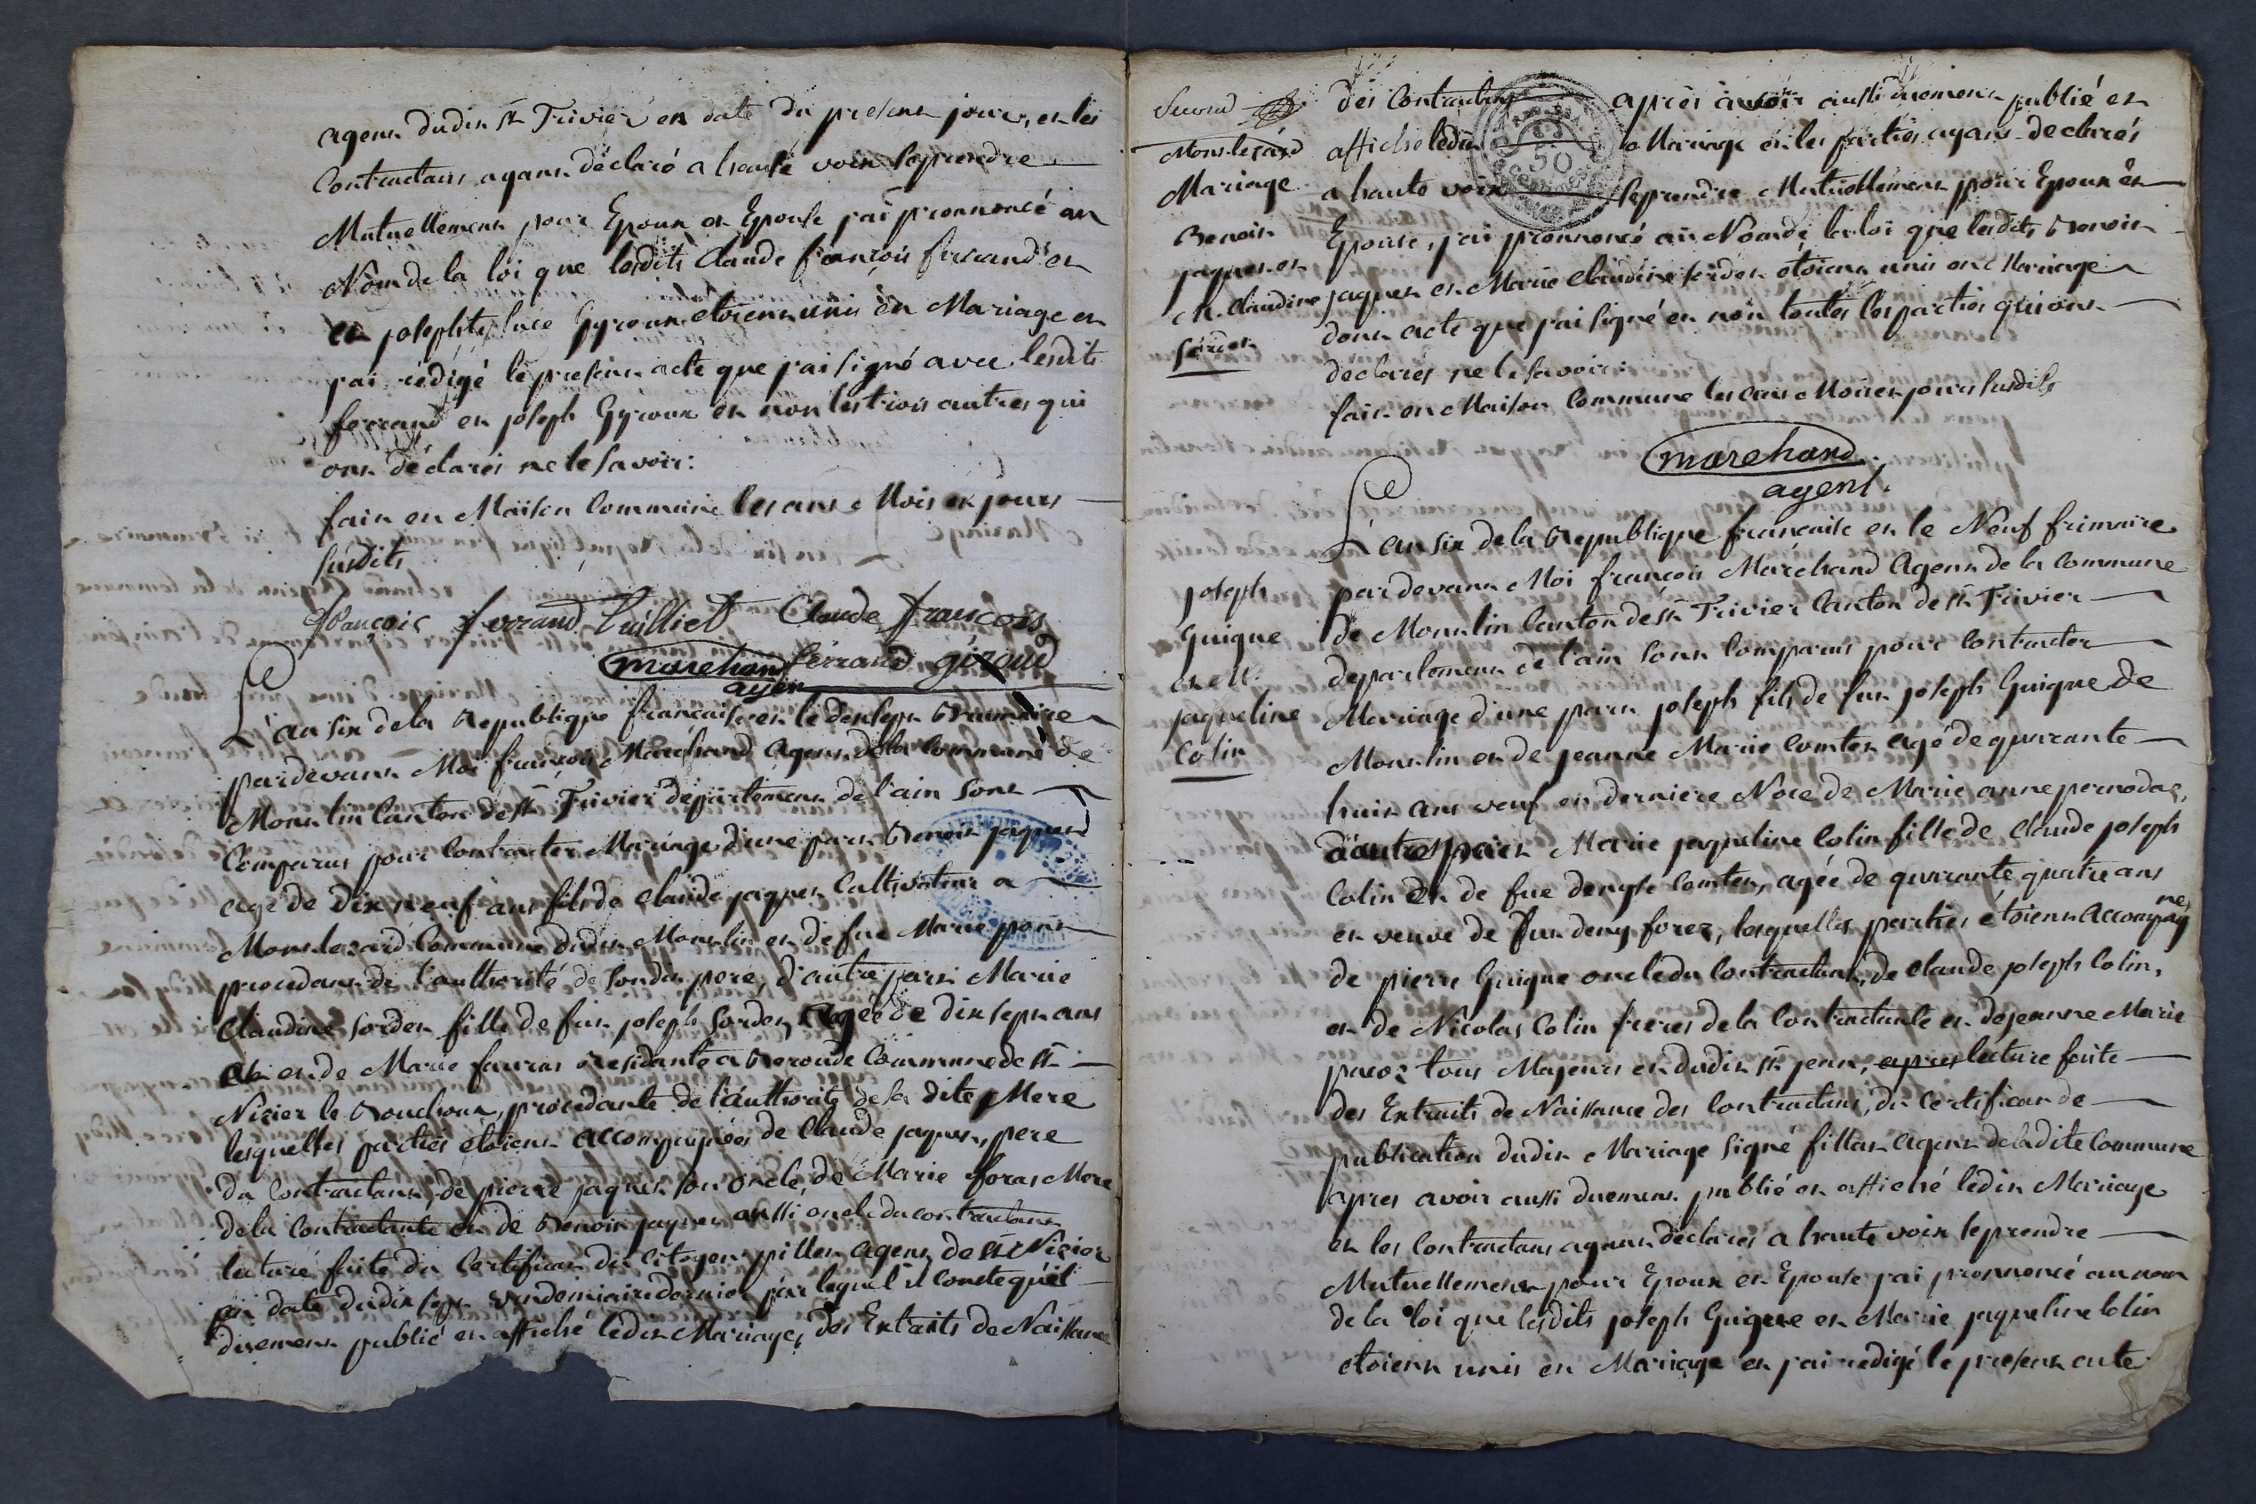 agent dudit st Trivier en date du present jour, et les
Contractans ayant déclaré a haute voix se prendre
Mutuellement pour Epoux et Epouse j'ai prononcé au
Nom de la loi que lesdits Claude françois ferrand et
et josephte Gyroux etoient unis en Mariage et
j'ai rédigé le present acte que j'ai signé avec lesdits
ferrand et joseph Gyroux et non les trois autres qui
ont déclarés ne le savoir:
fait en Maison Commune les ans Mois et jours
susdits
françois ferrand Tuilliet Claude françois
marchand ferrand giroud
agen
L'an six de la Republique française et le dix sept Brumaire
pardevant Moi françois Marchand Agent de la Commune de
Monulin Canton de st Trivier departement de l'ain sont
Comparus pour Contracter Mariage d'une part Benoit jaquet
agé de dix neuf ans fils de Claude jaquet Cultivateur a
Monlezard Commune dudit Monulin et de fue Marie pont
procedant de l'authorité de son dit pere, d'autre part Marie
Claudine sordet fille de fut joseph sordet, agée de dix sept ans
et de Marie foras residante a Beroude Commune de st
Nizier le Bouchoux, procedante de l'authorité de sa dite Mere
lesquelles parties étoient accompagnées de Claude jaquet, pere
du Contractant, de pierre jaquet son oncle, de Marie foras Mere
de la Contractante et de Benoit jaquet aussi oncle du contractant
lecture faite du Certificat du Citoyen pillet agent de st Nizier
en date du dix sept vendemiaire dernier par lequel il conste qu'el
duement publié et affiché ledit Mariage, des Extraits de Naissance
Second
Monlezard
Mariage
Benoit
jaquet et
M. Claudine
sordet
des Contractans après avoir aussi duement publié et
affiché ledit Mariage et les parties ayans declarés
a haute voix se prendre Mutuellement pour Epoux et
Epouse, j'ai prononcé au Nom de la loi que lesdits Benoit
jaquet et Marie Claudine sordet étoient unis en Mariage
dont acte que j'ai signé et non toutes les parties qui ont
déclarés ne le savoir:
fait en Maison Commune les ans Mois et jours susdits
marchand
agent
joseph
Guigue
et M.
jaqueline
Colin
L'an six de la Republique française et le Neuf frimaire
pardevant Moi françois Marchand Agent de la Commune
de Monulin Canton de st Trivier Canton de st Trivier
departement de l'ain sont Comparus pour Contracter
Mariage d'une part joseph fils de fut joseph Guigue de
Monulin et de jeanne Marie Comtet agé de quarante
huit ans veuf en derniere Noce de Marie anne pernodat,
d'autre part Marie jaqueline Colin fille de Claude joseph
Colin et de fue denyse Comtet, agée de quarante quatre ans
et veuve de fut deny forez, lesquelles parties étoient accompagnes
de pierre Guigue oncle du Contractant, de Claude joseph Colin,
et de Nicolas Colin freres de la Contractante et de jeanne Marie
puvoz tous Majeurs et dudit st jean, apres lecture faite
des Extraits de Naissance des Contractans, du Certificat de
publication dudit Mariage signé fillat agent de ladite Commune
apres avoir aussi duement publié et affiché ledit Mariage
et les Contractans ayant déclarés a haute voix se prendre
Mutuellement pour Epoux et Epouse j'ai prononcé au nom
de la loi que lesdits joseph Guigue et Marie jaqueline Colin
etoient unis en Mariage et j'ai redigé le present acte